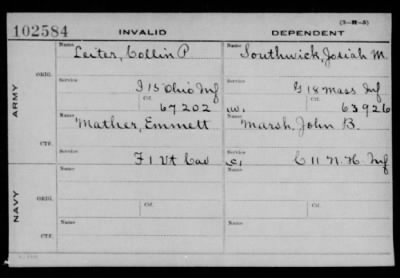 (3-H-3)
102584 INVALID DEPENDENT
Name Leiter, Collin P Name Southwick, Josiah M.
ORIG.
Service Service
I 15 Ohio Inf G 18 Mass Inf
Ctf. Ctf.
67202 63926
ARMY
Name Mather, Emmett Name Marsh, John B.
CTF.
Service Service
F 1 Vt Cav C 11 N. H. Inf
NAVY
Name Name
ORIG.
Ctf. Ctf.
Name Name
CTF.